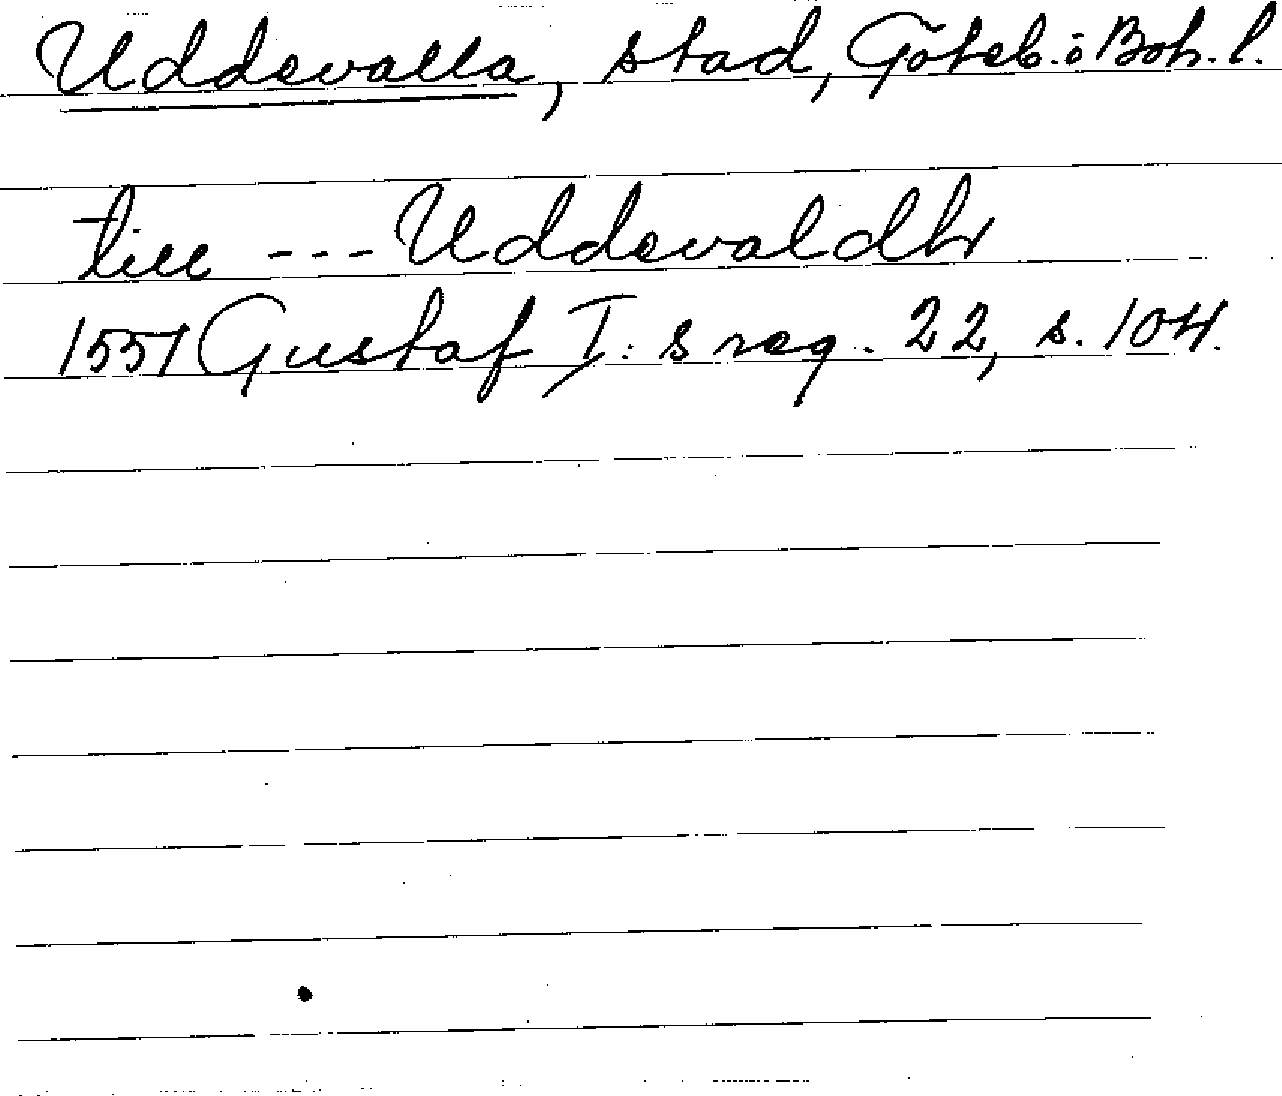 Uddevalla, stad, Göteb. o Boh. l.
till --- Uddevaldh
1551 Gustaf I:s reg. 22, s. 104.